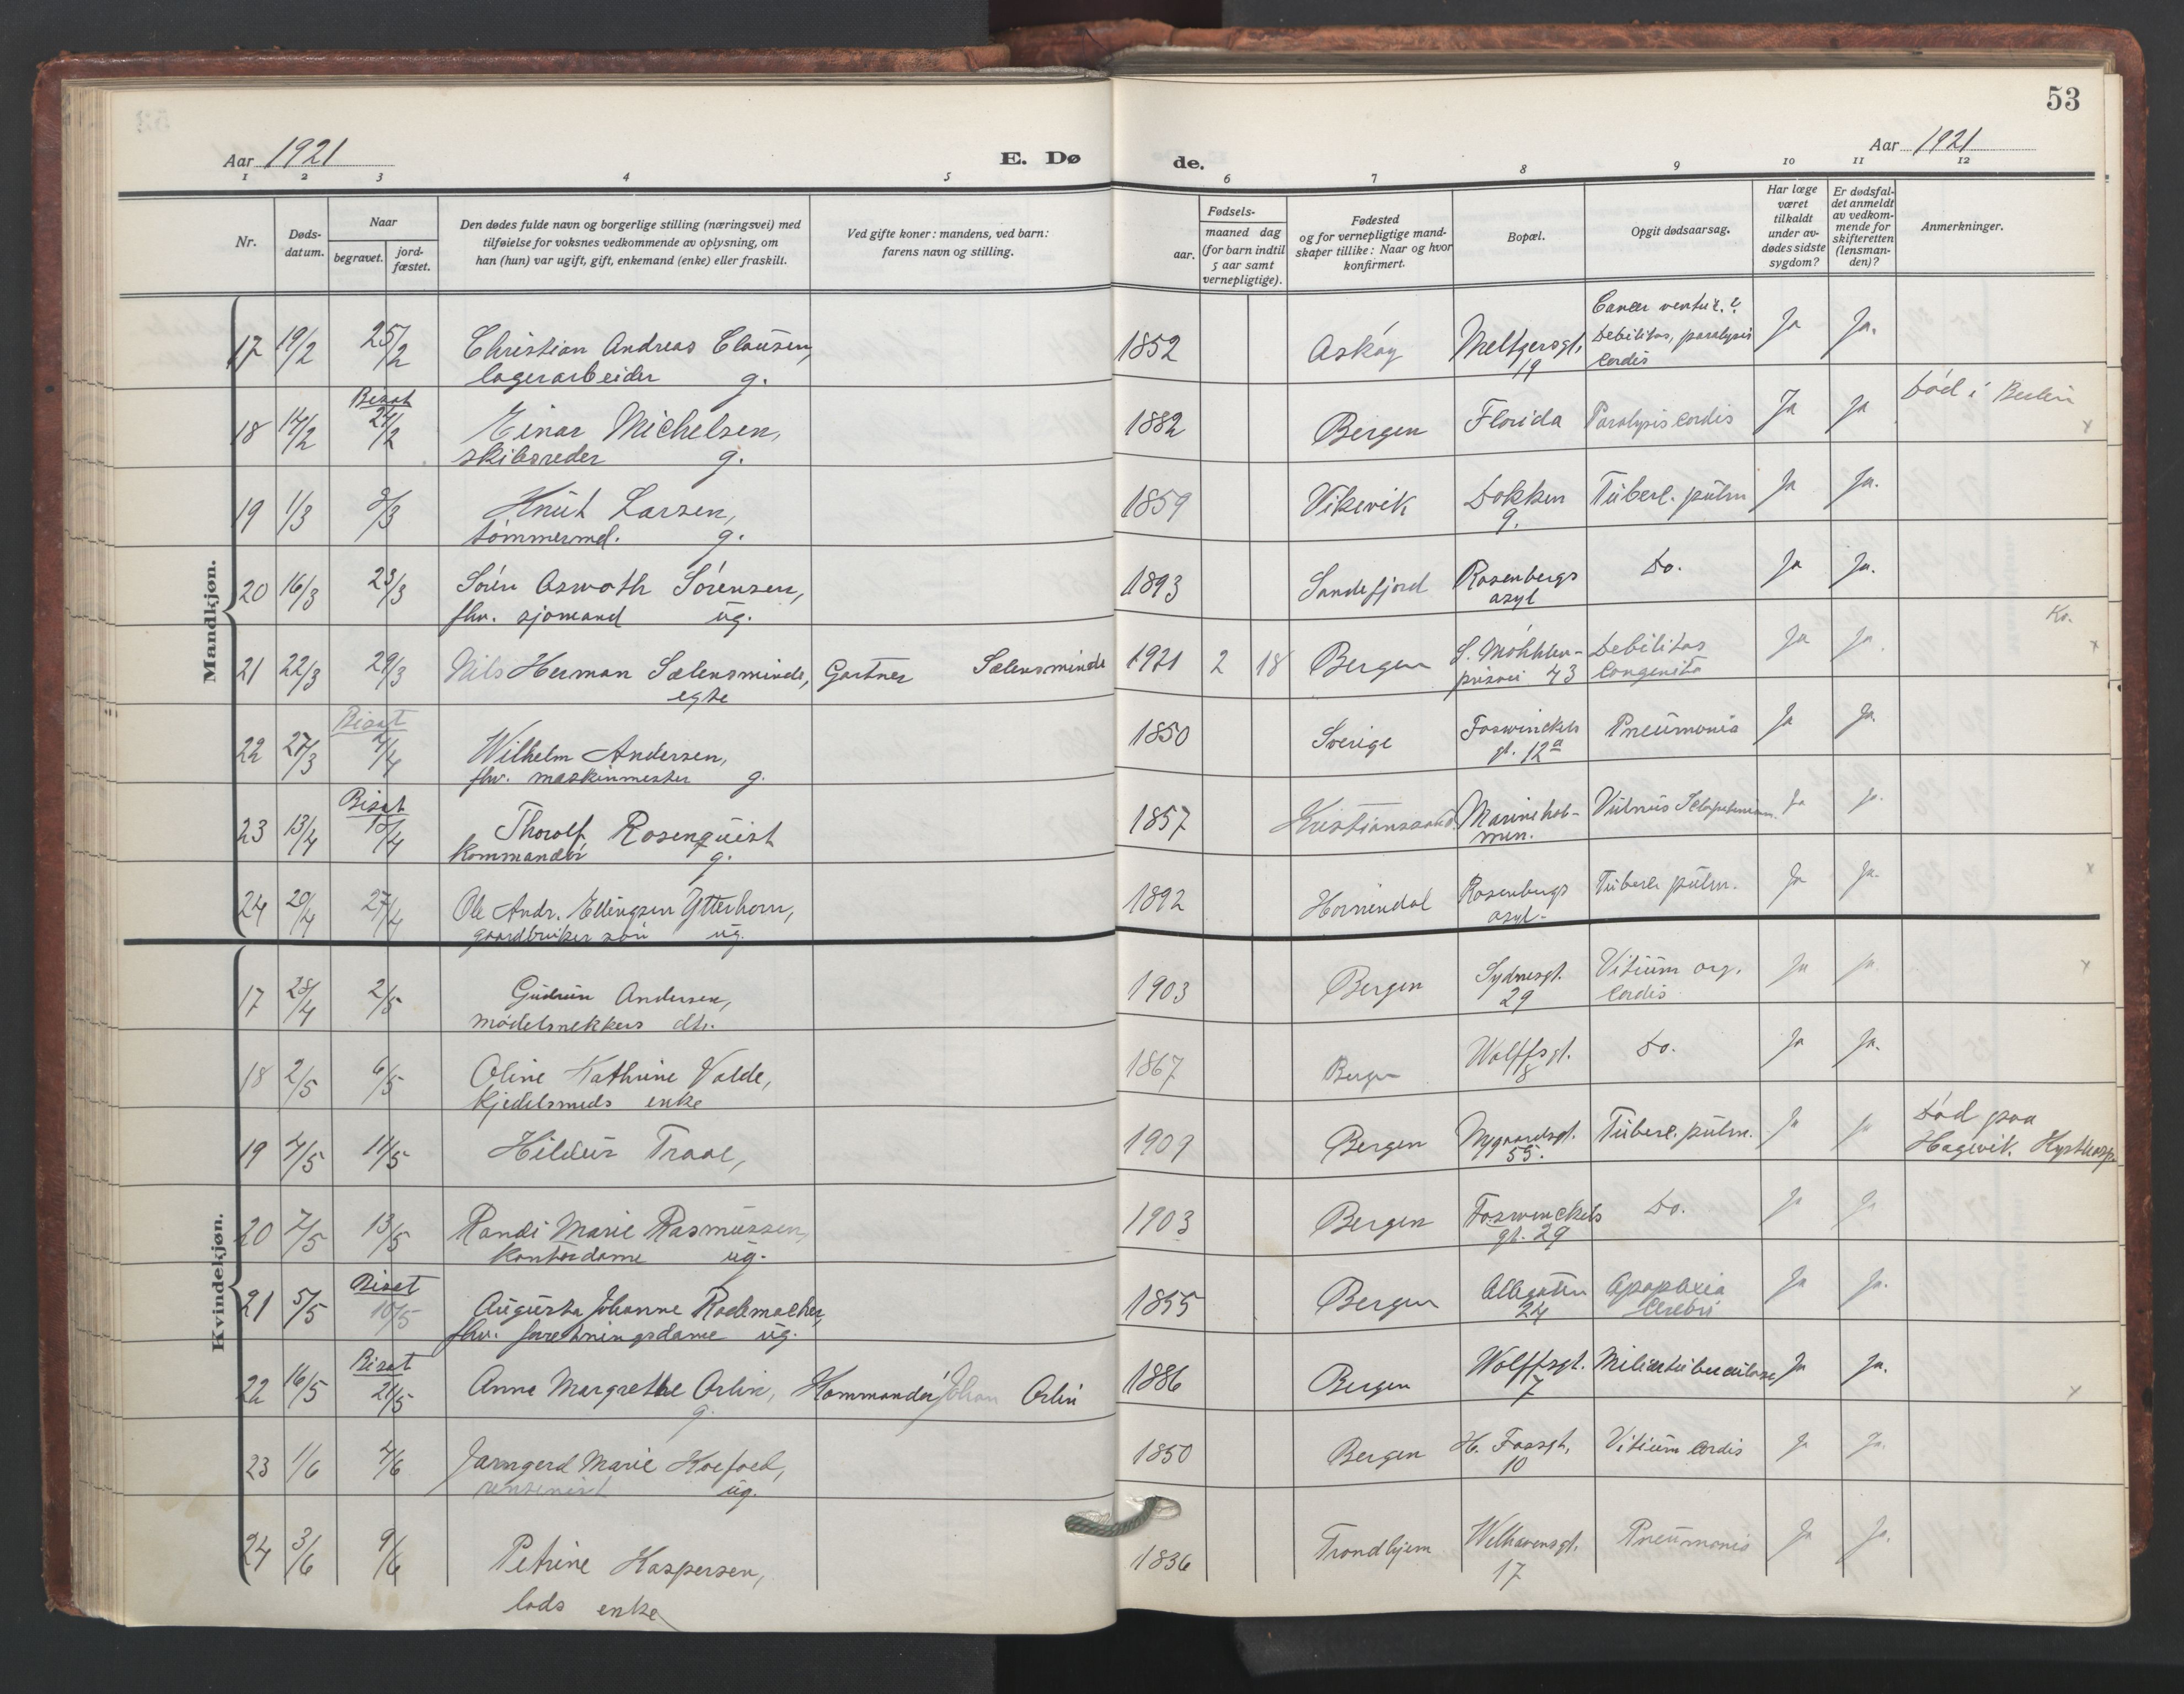 53
Aar 1921
E. Dø
de.
Aar 1921
1 2 3 4 5 6 7 8 9 10 11 12
Nr.
Døds-
datum.
Naar
begravet.
jord-
fæstet.
Den dødes fulde navn og borgerlige stilling (næringsvei) med
tilføielse for voksnes vedkommende av oplysning, om
han (hun) var ugift, gift, enkemand (enke) eller fraskilt.
Ved gifte koner: mandens, ved barn:
farens navn og stilling.
Fødsels-
aar.
maaned dag
(for barn indtil
5 aar samt
vernepligtige).
Fødested
og for vernepligtige mand-
skaper tillike: Naar og hvor
konfirmert.
Bopæl.
Opgit dødsaarsag.
Har læge
været
tilkaldt
under av-
dødes sidste
sygdom?
Er dødsfal-
det anmeldt
av vedkom-
mende for
skifteretten
(lensman-
den)?
Anmerkninger.
Mandkjøn.
17 19/2 25/2 Christian Andreas Clausen, 1852 Askøy Meltzersgt. Cancer ventr.? Ja Ja.
lagerarbeider g. 19 Debilitas, paralysis
cordis
Bisat
18 14/2 24/2 Einar Michelsen, 1882 Bergen Florida Paralysis cordis Ja Ja Død i Berlin
skibsreder g.
19 1/3 8/3 Knut Larsen, 1859 Vikevik Dokken Tuberc. pulm Ja Ja.
tømmermd. g. 9.
20 16/3 23/3 Sørin Asworth Sørensen, 1893 Sandefjord Rosenbergs Do. Ja Ja.
fhv. sjømand ug. asyl
21 22/3 29/3 Nils Herman Sælensminde, Gartner Sælensminde 1921 2 18 Bergen S. Møhlen- Debilitas Ja Ja
egte prisvei 43 congenita
Bisat
22 27/3 7/4 Wilhelm Andersen, 1850 Sverige Foswinckels Pneumonia Ja Ja.
fhv. maskinmester g. gt. 12a
Bisat
23 13/4 Thorolf Rosenquist 1857 Kristianssand. Marinehol- Vulnus Ja Ja.
kommandør g. men.
24 20/4 27/4 Ole Andr. Ellingsen Ytterhorn, 1892 Hornindal Rosenbergs Tuberc pulm. Ja Ja.
gaardbruker søn ug. asyl-
Kvindekjøn.
17 28/4 2/5 Gudrun Andersen, 1903 Bergen Sydnesgt. Vitium org. Ja Ja
modelsnekkers dtr. 29 cordis
18 2/5 6/5 Oline Kathrine Valde, 1867 Bergen Wolffsgt. Do. Ja Ja.
kjedelsmeds enke 8
19 4/5 11/5 Hildur Traae, 1909 Bergen Nygaardsgt. Tuberc. pulm. Ja Ja Død paa
55. Hagevik. Kysthosp.
20 7/5 13/5 Randi Marie Rasmussen, 1903 Bergen Foswinckels Do. Ja Ja
kontordame ug. gt. 29
Bisat
21 5/5 10/5 Augusta Johanne Rademacher, 1855 Bergen Allegaten Apoplexia Ja Ja.
fhv. foretningsdame ug. 24 cerebri
Bisat
22 16/5 21/5 Anna Margrethe Orlin, Kommandør Johan Orlin 1886 Bergen Wolffsgt. Miliærtuberculose Ja Ja.
g. 7
23 1/6 4/6 Jarngerd Marie Koefoed, 1850 Bergen H. Fossgt. Vitium cordis Ja Ja.
rentenist ug. 10
24 3/6 9/6 Petrine Kaspersen, 1836 Trondhjem Welhavensgt. Pneumonia Ja Ja.
lods enke 17